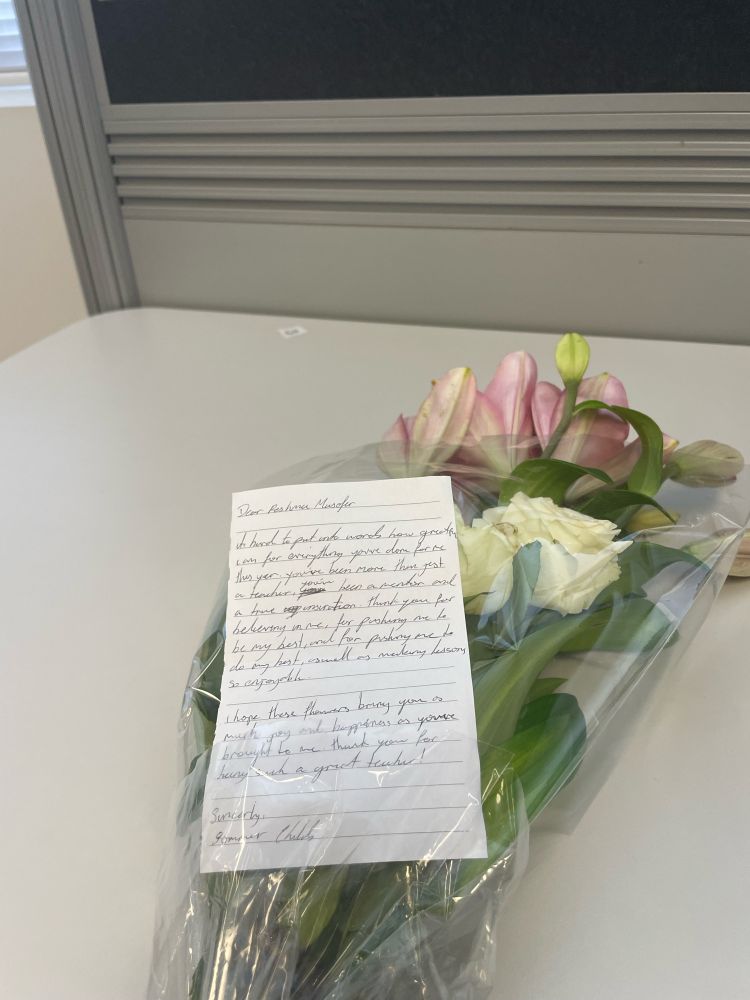 Dear Reshma Musofer
its hard to put into words how greatful
i am for everything you've done for me
this year, you've been more then jest
a teacher, you've been a mentor and
a true insiration. thank you for
believing in me, for pushing me to
be my best, and for pushing me to
do my best, aswell as making lessons
so enjoyable.
i hope these flowers bring you as
much joy and happiness as you've
brought to me. thank you for
being such a great teacher!
Sincerly,
Childs